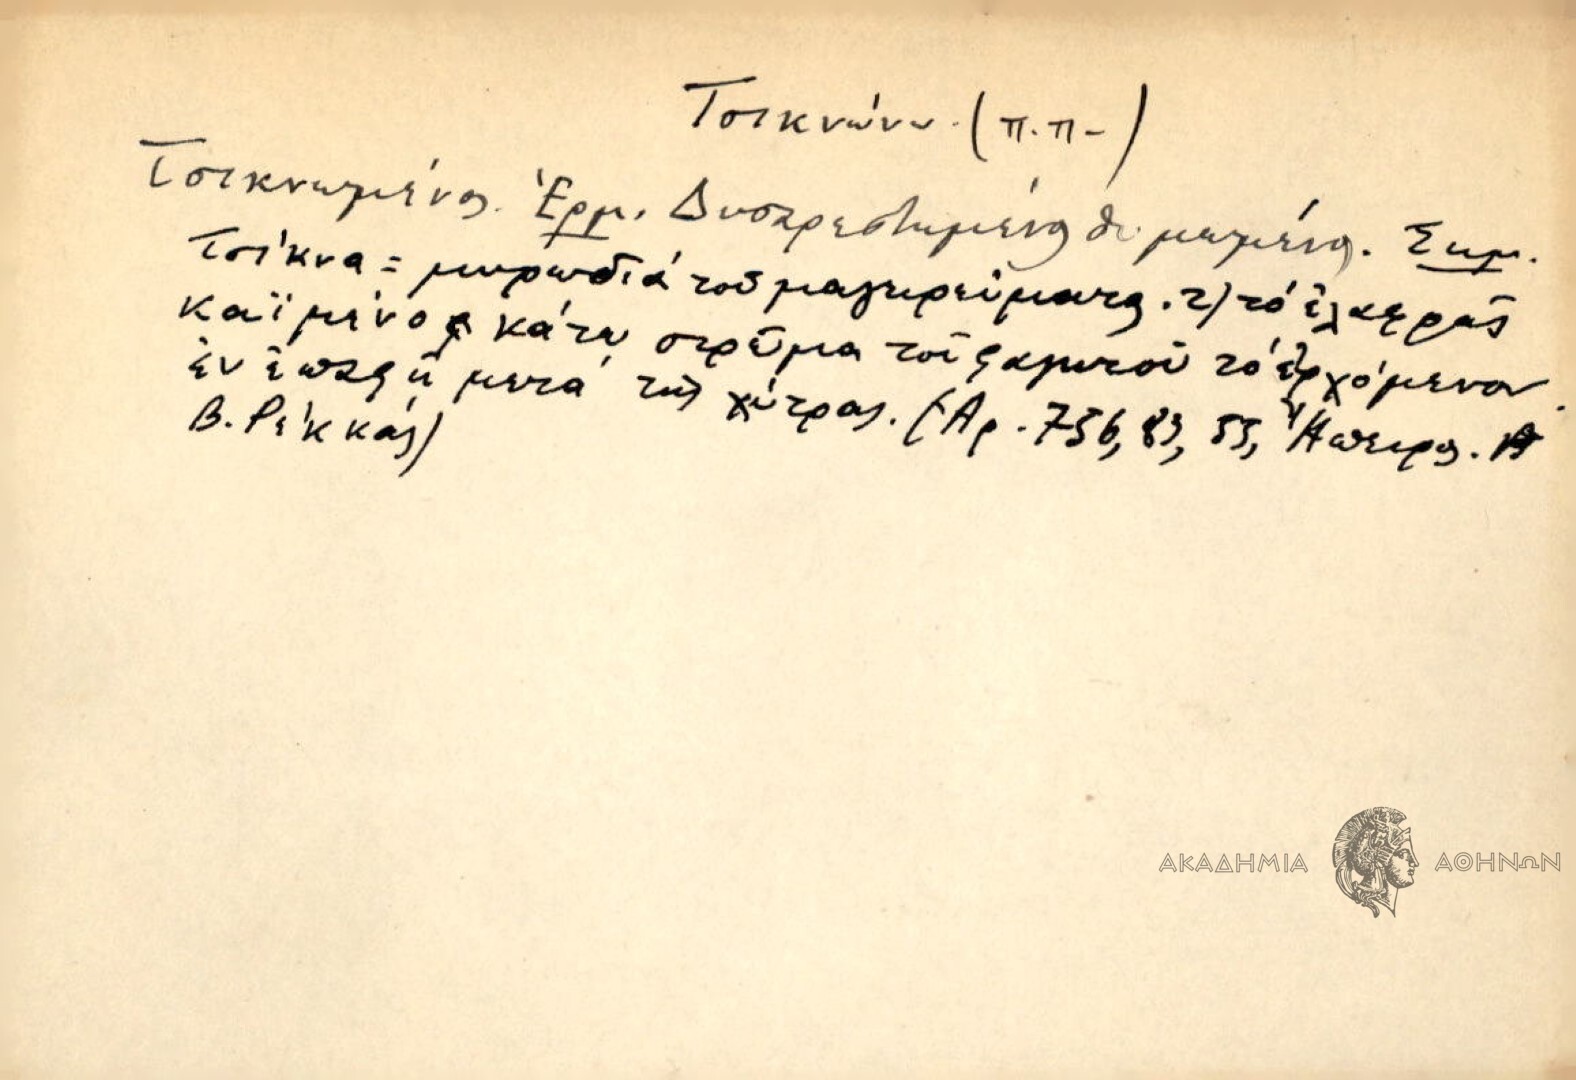 Τσικνώνω. (π.π-)
Τσικνωμένος. Ἑρμ. Δυσαρεστημένος θυμωμένος. Σημ.
Τσίκνα = μυρωδιά τοῦ μαγειρεύματος. 2) τό ἐλαφρῶς
καϊμένο κάτω στρῶμα τοῦ φαγητοῦ τό ἐρχόμενον
ἐν ἐπαφῇ μετά τῆς χύτρας. (Ἀρ. 756, 83, 55, Ἤπειρος.
Β. Ρέκκάς)
ΑΚΑΔΗΜΙΑ ΑΘΗΝΩΝ